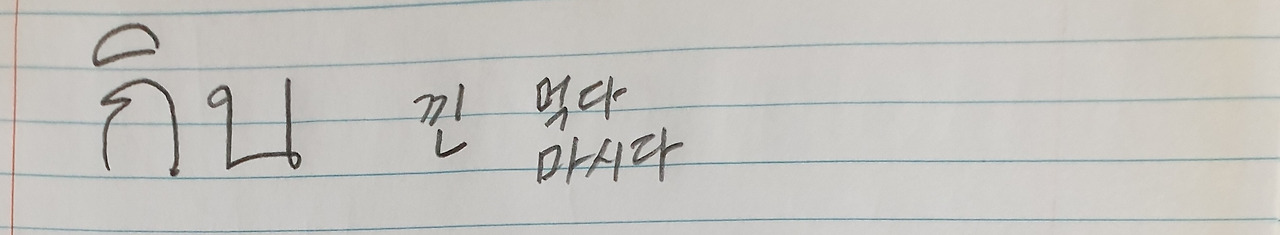 กิน 낀 먹다
마시다